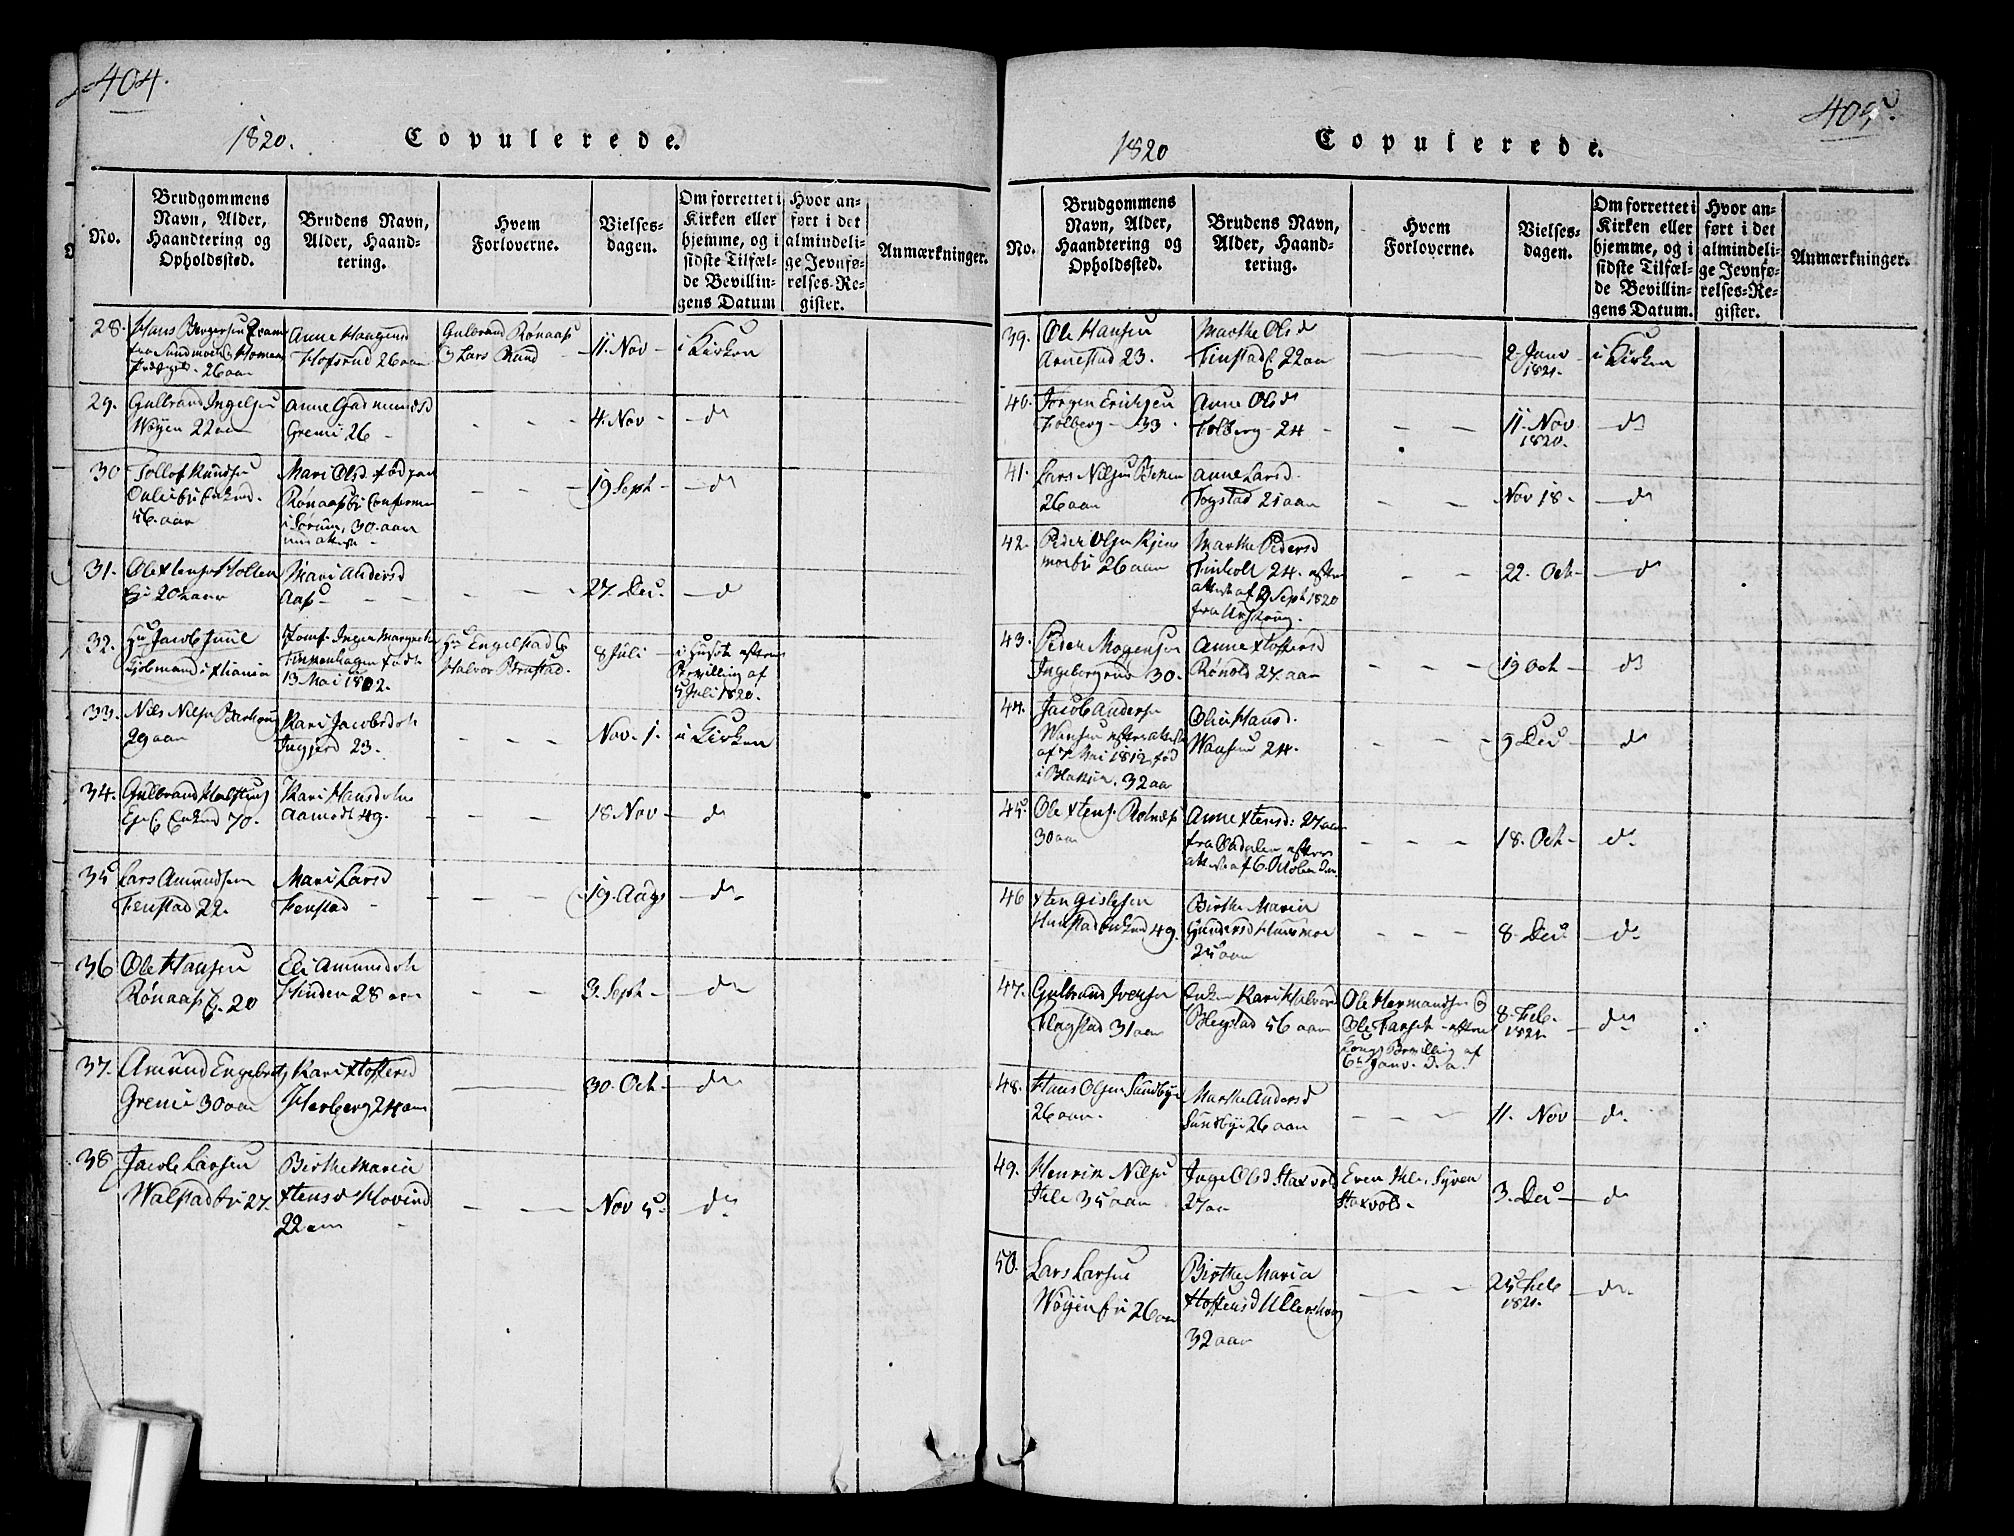 404.
1820. Copulerede.
No.
Brudgommens
Navn, Alder,
Haandtering og
Opholdssted.
Brudens Navn,
Alder, Haand-
tering.
Hvem
Forloverne.
Vielses-
dagen.
Om forrettet i
Kirken eller
hjemme, og i
sidste Tilfæl-
de Bevillin-
gens Datum
Hvor an-
ført i det
almindeli-
ge Jevnfø-
relses-Re-
gister.
Anmærkninger.
28. Hans Bergersen
26 aar
Anne Haagensd
Hofsrud 26 aar
Gulbrand Rønaas
& Lars Rand
11. Nov
i Kirken
29. Gulbrand Ingelsen
Wøyen 22 aar
Anne Gudmundsd
Gremi 26
4. Nov
do
30 Tollof Knudsen
56. aar
Mari Olsd født paa
i Sørum, 30. aar
19 Sept
do
31. Ole
20 aar
Mari Andersd
Aas
27. Dec
do
32. Hr Jacob Juul
Kjøbmand i Xtiania
Jomf. Inger Margrethe
Finkenhagen født
13 Mai 1802.
Hr Engelstad &
Halvor Brustad.
8 Juli
i Huset efter
Bevilling af
5 Juli 1820.
33. Nils Nilsen
29 aar
Kari Jacobsdtr
Ingjerd 23.
Nov. 1.
i Kirken
34. Gulbrand
Enkmd 70.
Kari Hansdatter
Aamodt 49.
18 Nov
do
35 Lars Amundsen
Fenstad 22.
Mari Larsd
Fenstad
19. Aug
do
36 Ole Hansen
Rønaas E. 20
Eli Amundsdtr
Hinder 28 aar
3. Sept
do
37. Amund Engebretsen
Gremi 30 aar
Kari Xtoffersd
Herberg 24 aar
30. Oct
do
38 Jacob Larsen
Walstad 27.
Birthe Maria
Xtensd Hovind
22 aar
Nov 5.
do
405.
1820 Copulerede.
No.
Brudgommens
Navn, Alder,
Haandtering og
Opholdssted.
Brudens Navn,
Alder, Haand-
tering.
Hvem
Forloverne.
Vielses-
dagen.
Om forrettet i
Kirken eller
hjemme, og i
sidste Tilfæl-
de Bevillin-
gens Datum.
Hvor an-
ført i det
almindeli-
ge Jevnfø-
relses-Re-
gister.
Anmærkninger.
39. Ole Hansen
Arnestad 23.
Marthe Olsd
Finstad E. 22 aar
2. Janv
1821.
i Kirken
40. Jørgen Erichsen
Holberg 33
Anne Olsd
Holberg 24
11. Nov
1820.
do
41. Lars Nilsen
26 aar
Anne Larsd.
Fogstad 21 aar
Nov 18.
do
42. Peder Olsen
26 aar
Marthe Pedersd
Finholt 24. efter
attest af 9 Sept 1820
fra
22. Oct
do
43. Peder Mogensen
Ingebergrud 30.
Anne Xtoffersd
Rønold 27. aar
19 Oct
do
44. Jacob Andersen
Wansen efter attest
af 7 Mai 1812, fød
i 32 aar
Olia Hansd.
Wansen 24.
9 Dec
do
45. Ole Xtens.
30 aar
Anne Xtensd: 27 aar
fra Odalen efter
attest af 6. October
18. Oct
do
46 Xten Gislesen
Enkmd 49.
Birthe Maria
Gundersd
25 aar
8. Dec
do
47. Gulbrand Iversen
Flagstad 31 aar
Enken Kari Halvors
Blegstad 56 aar
Ole Hermandsen &
Ole Farset efter
Kongl Bevilling af
6te Janv. d. a.
8. Feb.
1821
do
48. Hans Olsen Sundbye
26 aar.
Marthe Andersd
Sundbye 26 aar
11. Nov
do
49. Henrik Nilsen
Hele 35 aar
Inge Olsd Haxvold
27 aar
Even Hele, Syver
Haxvold
3. Dec
do
50. Lars Larsen
Wøyen 26 aar
Birthe Maria
Xtoffersd Ullershoug
32 aar
25 Feb
1821.
do